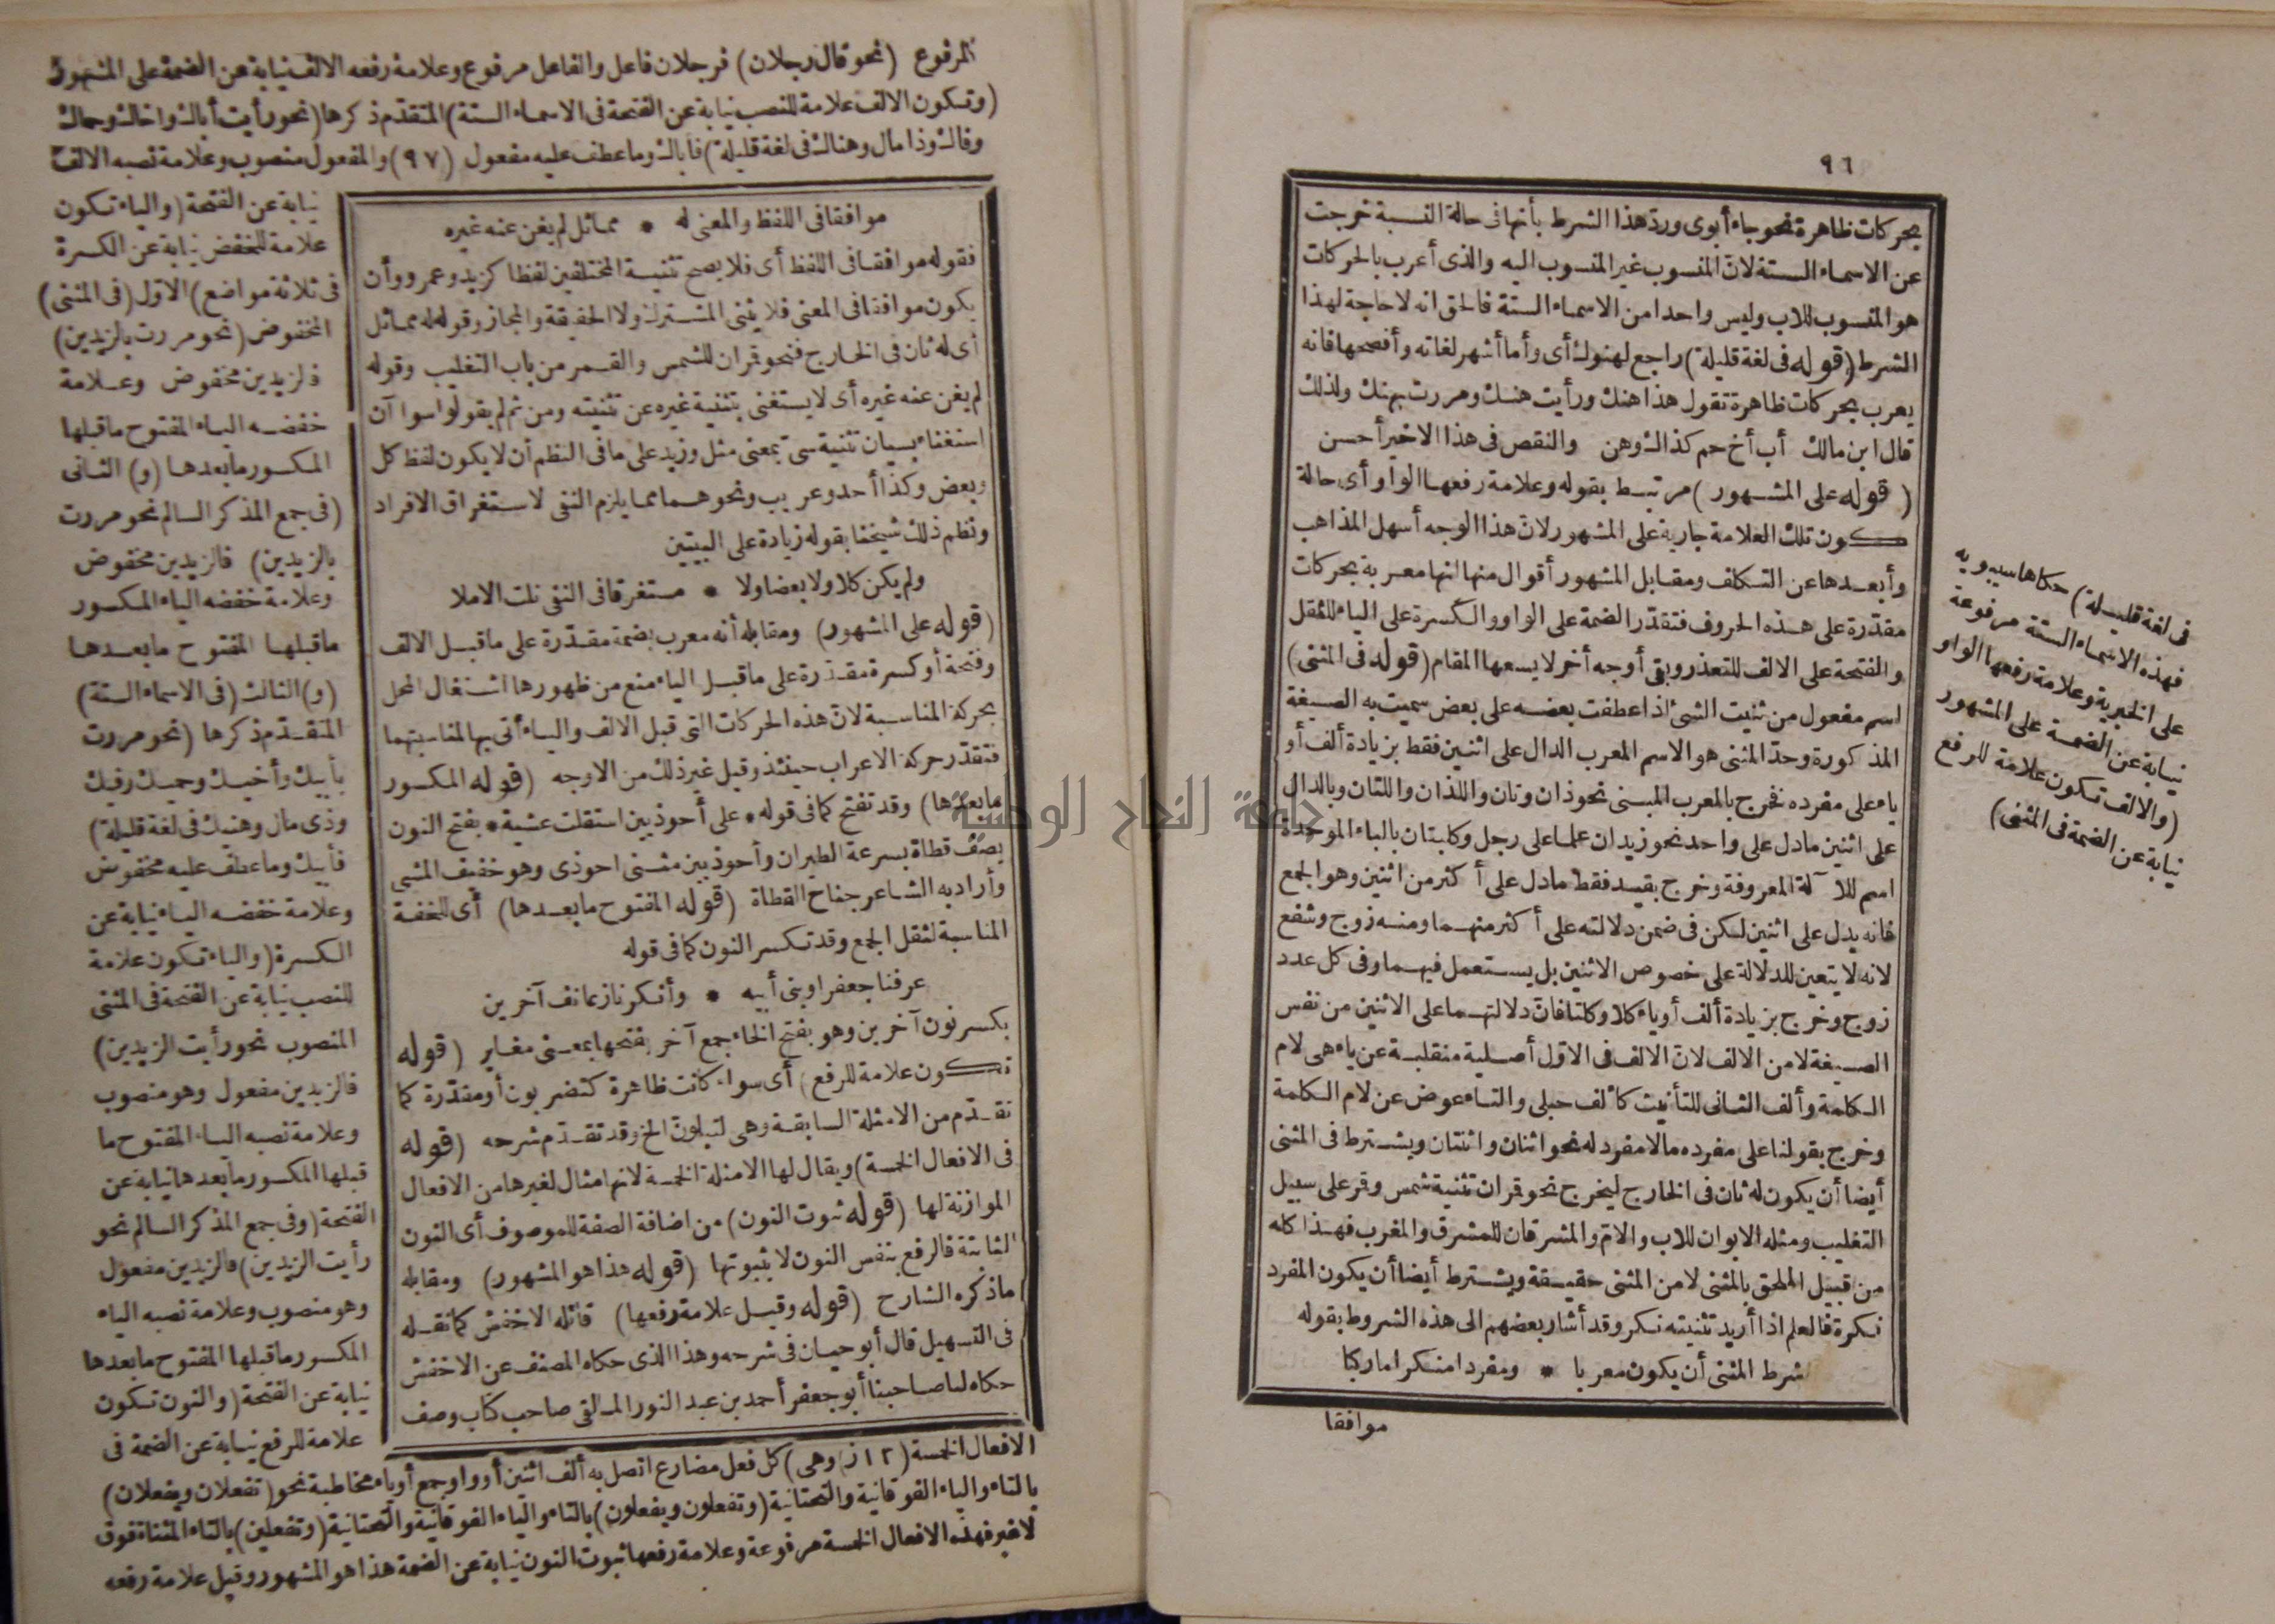 ٩٦
بحركات ظاهرة نحو جاء أبوى ورد هذا الشرط بأنها فى حالة النسبة خرجت
عن الاسماء الستة لان المنسوب غير المنسوب اليه والذى أعرب بالحركات
هو المنسوب للاب وليس واحدا من الاسماء الستة فالحق انه لا حاجة لهذا
الشرط (قوله فى لغة قليلة) راجع لهنوك أى وأما أشهر لغاته وأفصحها فانه
يعرب بحركات ظاهرة تقول هذا هنك ورأيت هنك ومررت بهنك ولذلك
قال ابن مالك أب أخ حم كذاك وهن والنقص فى هذا الاخير أحسن
(قوله على المشهور) مرتبط بقوله وعلامة رفعها الواو أى حالة
كون تلك العلامة جارية على المشهور لان هذا الوجه أسهل المذاهب
وأبعدها عن التكلف ومقابل المشهور أقوال منها انها معربة بحركات
مقدرة على هذه الحروف فتقدر الضمة على الواو والكسرة على الياء للثقل
والفتحة على الالف للتعذر وبقى أوجه أخر لا يسعها المقام (قوله فى المثنى)
اسم مفعول من ثنيت الشئ اذا عطفت بعضه على بعض سميت به الصيغة
المذكورة وحد المثنى هو الاسم المعرب الدال على اثنين فقط بزيادة ألف أو
ياء على مفرده فخرج بالمعرب المبنى نحو ذان وتان واللذان واللتان وبالدال
على اثنين ما دل على واحد نحو زيدان علما على رجل وكلبتان بالباء الموحدة
اسم للآلة المعروفة وخرج بقيد فقط ما دل على أكثر من اثنين وهو الجمع
فانه يدل على اثنين لكن فى ضمن دلالته على أكثر منهما ومنه زوج وشفع
لانه لا يتعين للدلالة على خصوص الاثنين بل يستعمل فيهما وفى كل عدد
زوج وخرج بزيادة ألف أو ياء كلا وكلتا فان دلالتهما على الاثنين من نفس
الصيغة لا من الالف لان الالف فى الاول أصلية منقلبة عن ياء هى لام
الكلمة وألف الثانى للتأنيث كألف حبلى والتاء عوض عن لام الكلمة
وخرج بقولنا على مفرده ما لا مفرد له نحو اثنان واثنتان ويشترط فى المثنى
أيضا أن يكون له ثان فى الخارج ليخرج نحو قمران تثنية شمس وقمر على سبيل
التغليب ومثله الابوان للاب والام والمشرقان للمشرق والمغرب فهذا كله
من قبيل الملحق بالمثنى لا من المثنى حقيقة ويشترط أيضا أن يكون المفرد
نكرة فالعلم اذا أريد تثنيته نكر وقد أشار بعضهم الى هذه الشروط بقوله
شرط المثنى أن يكون معربا * ومفردا منكرا ما ركبا
موافقا
فى لغة قليلة) حكاها سيبويه
فهذه الاسماء الستة مرفوعة
على الخبرية وعلامة رفعها الواو
نيابة عن الضمة على المشهور
(والالف تكون علامة للرفع
نيابة عن الضمة فى المثنى)
المرفوع (نحو قال رجلان) فرجلان فاعل والفاعل مرفوع وعلامة رفعه الالف نيابة عن الضمة على المشهور
(وتكون الالف علامة للنصب نيابة عن الفتحة فى الاسماء الستة) المتقدم ذكرها (نحو رأيت أباك وأخاك وحماك
وفاك وذا مال وهناك فى لغة قليلة) فأباك وما عطف عليه مفعول (٩٧) والمفعول منصوب وعلامة نصبه الالف
نيابة عن الفتحة (والياء تكون
علامة للخفض نيابة عن الكسرة
فى ثلاثة مواضع) الاول (فى المثنى)
المخفوض (نحو مررت بالزيدين)
فالزيدين مخفوض وعلامة
خفضه الياء المفتوح ما قبلها
المكسور ما بعدها (و) الثانى
(فى جمع المذكر السالم نحو مررت
بالزيدين) فالزيدين مخفوض
وعلامة خفضه الياء المكسور
ما قبلها المفتوح ما بعدها
(و) الثالث (فى الاسماء الستة)
المتقدم ذكرها (نحو مررت
بأبيك وأخيك وحميك وفيك
وذى مال وهنيك فى لغة قليلة)
فأبيك وما عطف عليه مخفوض
وعلامة خفضه الياء نيابة عن
الكسرة (والياء تكون علامة
للنصب نيابة عن الفتحة فى المثنى
المنصوب نحو رأيت الزيدين)
فالزيدين مفعول وهو منصوب
وعلامة نصبه الياء المفتوح ما
قبلها المكسور ما بعدها نيابة عن
الفتحة (وفى جمع المذكر السالم نحو
رأيت الزيدين) فالزيدين مفعول
وهو منصوب وعلامة نصبه الياء
المكسور ما قبلها المفتوح ما بعدها
نيابة عن الفتحة (والنون تكون
علامة للرفع نيابة عن الضمة فى
موافقا فى اللفظ والمعنى له * مماثل لم يغن عنه غيره
فقوله موافقا فى اللفظ أى فلا يصح تثنية المختلفين لفظا كزيد وعمرو وأن
يكون موافقا فى المعنى فلا يثنى المشترك ولا الحقيقة والمجاز وقوله له مماثل
أى له ثان فى الخارج فنحو قمران للشمس والقمر من باب التغليب وقوله
لم يغن عنه غيره أى لا يستغنى بتثنية غيره عن تثنيته ومن ثم لم يقولوا سواآن
استغناء بسيان تثنية سى بمعنى مثل وزيد على ما فى النظم أن لا يكون لفظ كل
وبعض وكذا أحد وعريب ونحوهما مما يلزم النفى لاستغراق الافراد
ونظم ذلك شيخنا بقوله زيادة على البيتين
ولم يكن كلا ولا بعضا ولا * مستغرقا فى النفى نلت الاملا
(قوله على المشهور) ومقابله أنه معرب بضمة مقدرة على ما قبل الالف
وفتحة أو كسرة مقدرة على ما قبل الياء منع من ظهورها اشتغال المحل
بحركة المناسبة لان هذه الحركات التى قبل الالف والياء أتى بها لمناسبتهما
فتقدر حركة الاعراب حينئذ وقيل غير ذلك من الاوجه (قوله المكسور
ما بعدها) وقد تفتح كما فى قوله * على أحوذيين استقلت عشية * بفتح النون
يصف قطاة بسرعة الطيران وأحوذيين مثنى احوذى وهو خفيف المشى
وأراد به الشاعر جناح القطاة (قوله المفتوح ما بعدها) أى للخفة
المناسبة لثقل الجمع وقد تكسر النون كما فى قوله
عرفنا جعفرا وبنى أبيه * وأنكرنا زعانف آخرين
بكسر نون آخرين وهو بفتح الخاء جمع آخر بفتحها بمعنى مغاير (قوله
تكون علامة للرفع) أى سواء كانت ظاهرة كتضربون أو مقدرة كما
تقدم من الامثلة السابقة وهى لتبلون الخ وقد تقدم شرحه (قوله
فى الافعال الخمسة) ويقال لها الامثلة الخمسة لانها مثال لغيرها من الافعال
الموازنة لها (قوله ثبوت النون) من اضافة الصفة للموصوف أى النون
الثابتة فالرفع بنفس النون لا بثبوتها (قوله هذا هو المشهور) ومقابله
ما ذكره الشارح (قوله وقيل علامة رفعها) قائله الاخفش كما نقله
فى التسهيل قال أبو حيان فى شرحه وهذا الذى حكاه المصنف عن الاخفش
حكاه لنا صاحبنا أبو جعفر أحمد بن عبد النور المالقى صاحب كتاب وصف
الافعال الخمسة (١٢ ز) وهى) كل فعل مضارع اتصل به ألف اثنين أو واو جمع أو ياء مخاطبة نحو (تفعلان ويفعلان)
بالتاء والياء الفوقانية والتحتانية (وتفعلون ويفعلون) بالتاء والياء الفوقانية والتحتانية (وتفعلين) بالتاء المثناة فوق
لا غير فهذه الافعال الخمسة مرفوعة وعلامة رفعها ثبوت النون نيابة عن الضمة هذا هو المشهور وقيل علامة رفعه
جامعة النجاح الوطنية